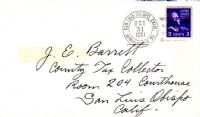 OCT
1951
3 CENTS 3
J. E. Barrett
County Tax Collector
Room 204 Courthouse
San Luis Obispo
Calif.